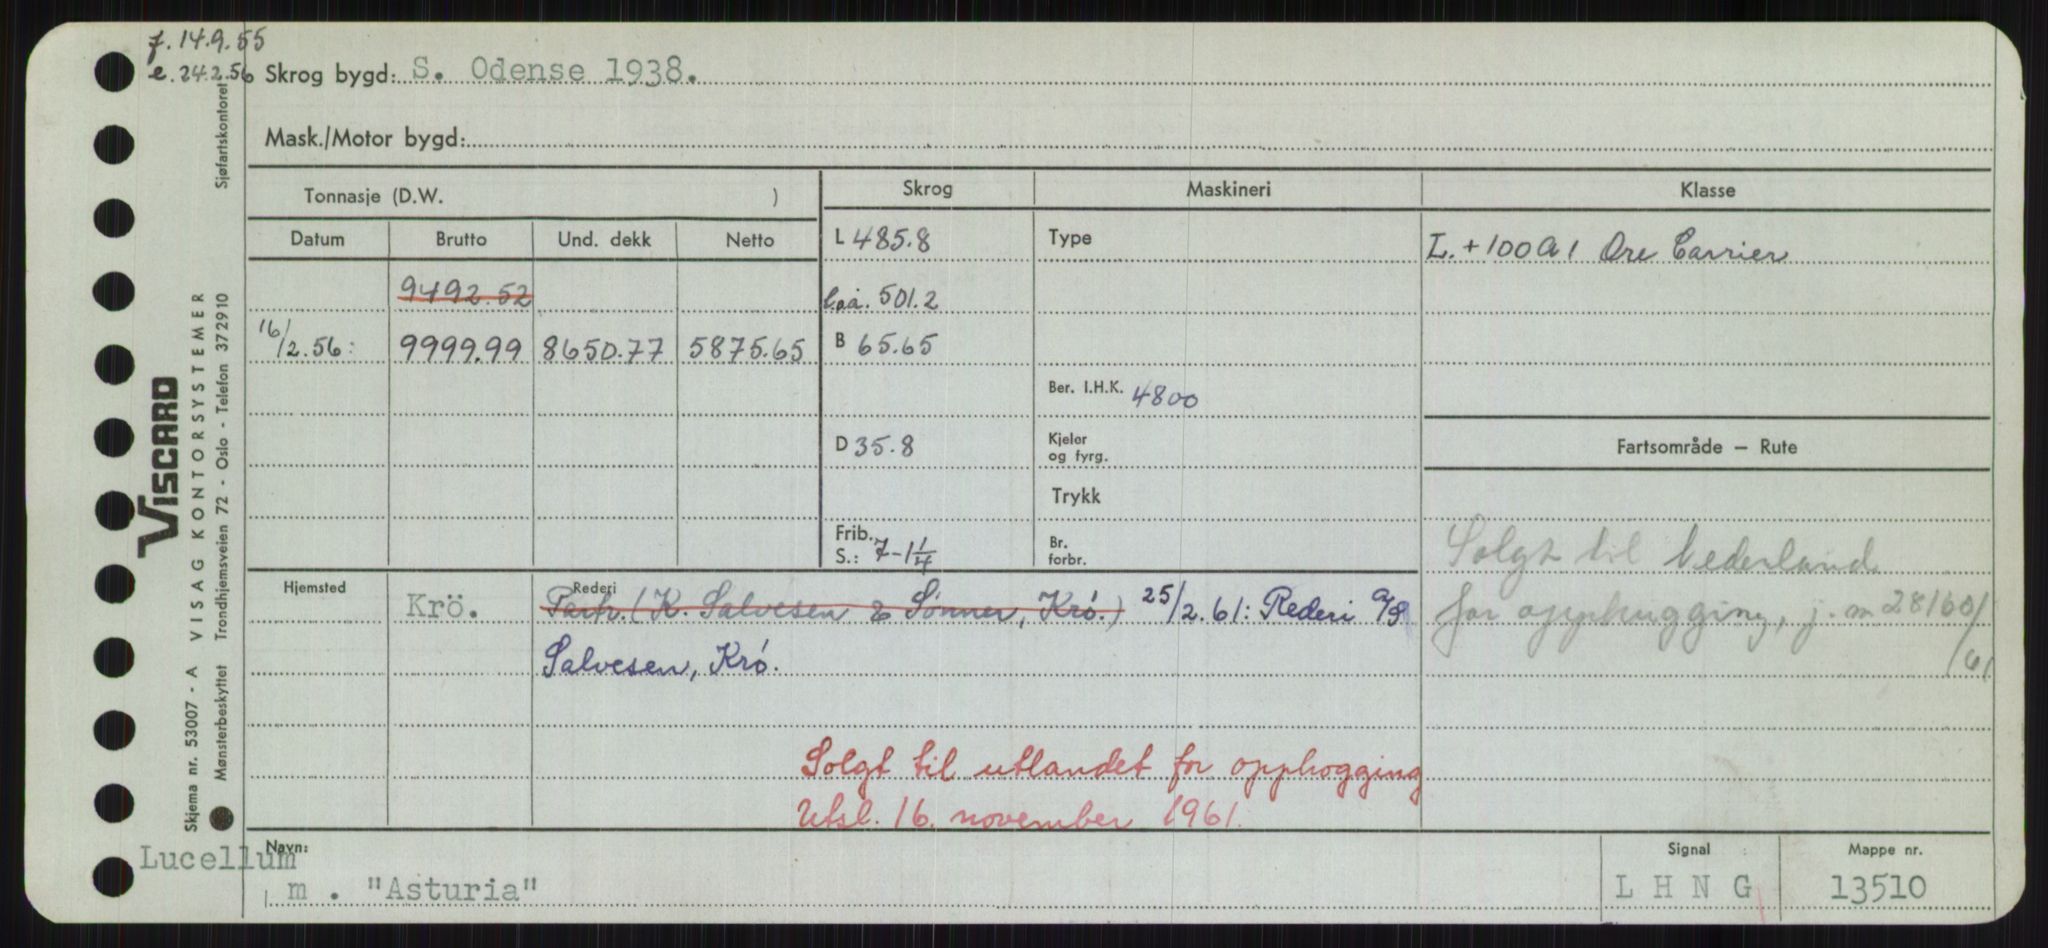 f. 14.9.55
e. 24.2.56 Skrog bygd: S. Odense 1938.
Mask./Motor bygd:
Tonnasje (D.W. ) Skrog Maskineri Klasse
Datum Brutto Und. dekk Netto L 485.8 Type L. + 100 A 1 Ore Carrier
9492.52 l.o.a. 501.2
16/2.56: 9999.99 8650.77 5875.65 B 65.65
Ber. I.H.K. 4800
D 35.8 Kjeler og fyrg. Fartsområde — Rute
Trykk
Frib. S.: 7-1 1/4 Br. forbr. Solgt til Nederland
for opphugging, j. m 28160/
/61
Hjemsted Krö. Rederi Partr. (K. Salvesen & Sønner, Krö.) 25/2.61: Rederi A/S
Salvesen, Krö.
Solgt til utlandet for opphogging
Utsl. 16. november 1961.
Navn: Lucellum Signal Mappe nr.
m . "Asturia" L H N G 13510
VISCARD
VISAG KONTORSYSTEMER
Skjema nr. 53007 - A
Mønsterbeskyttet Trondhjemsveien 72 - Oslo - Telefon 372910
Sjøfartskontoret